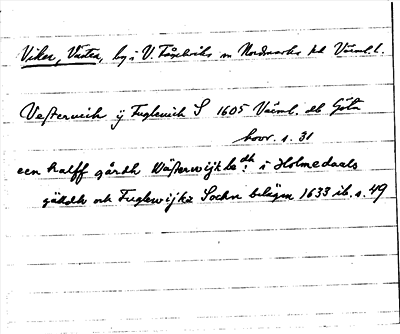 Viker, Västra, by i V. Fågelviks sn Nordmarks hd Värml. l.
Vesterwich ÿ Fuglewich S 1605 Värml. db Götn
hovr. s. 31
een halff gårdh Wäßterwijk be:dh i Holmedaals
gälldh och Fuglewijkz Sochn belägin 1633 ib. s. 49